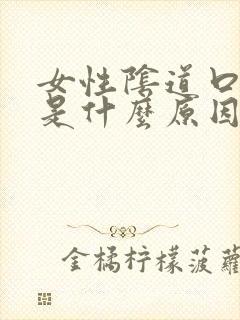 女性陰道口
是什麼原因
金橘柠檬菠蘿